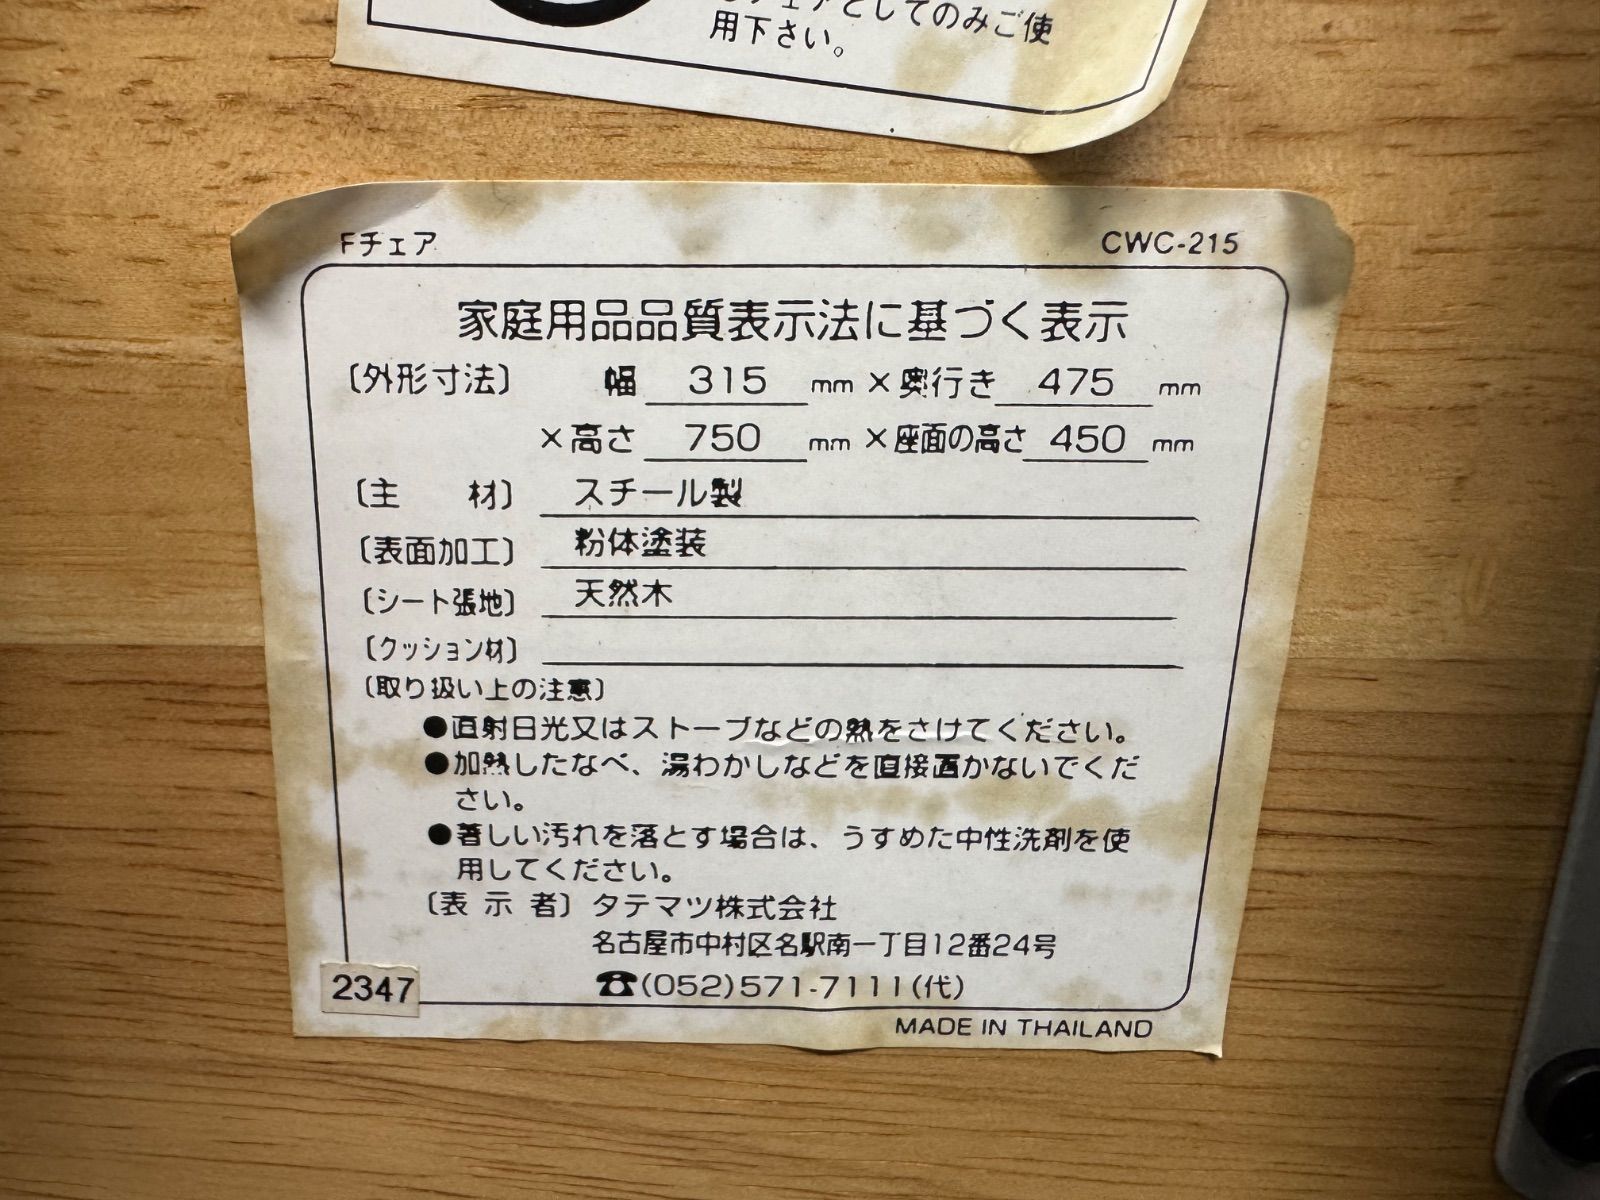 チェアとしてのみご使
用下さい。
Fチェア CWC-215
家庭用品品質表示法に基づく表示
〔外形寸法〕 幅 315 mm × 奥行き 475 mm
×高さ 750 mm ×座面の高さ 450 mm
〔主 材〕 スチール製
〔表面加工〕 粉体塗装
〔シート張地〕 天然木
〔クッション材〕
〔取り扱い上の注意〕
●直射日光又はストーブなどの熱をさけてください。
●加熱したなべ、湯わかしなどを直接置かないでくだ
さい。
●著しい汚れを落とす場合は、うすめた中性洗剤を使
用してください。
〔表 示 者〕 タテマツ株式会社
名古屋市中村区名駅南一丁目12番24号
☎(052)571-7111(代)
2347
MADE IN THAILAND